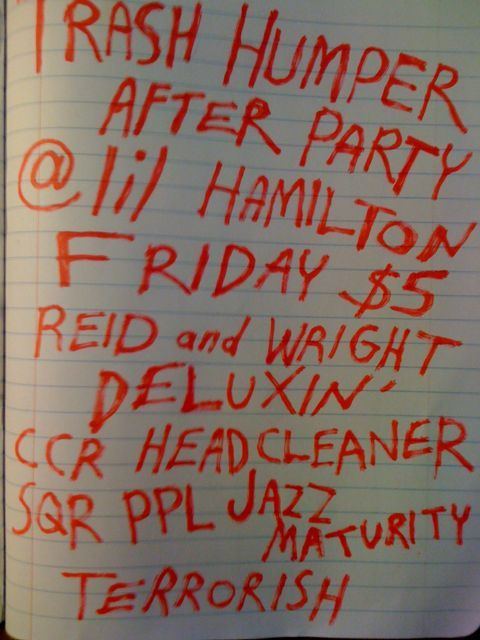 TRASH HUMPER
AFTER PARTY
@ lil HAMILTON
FRIDAY $5
REID and WRIGHT
DELUXIN'
CCR HEADCLEANER
SQR PPL JAZZ
MATURITY
TERRORISH